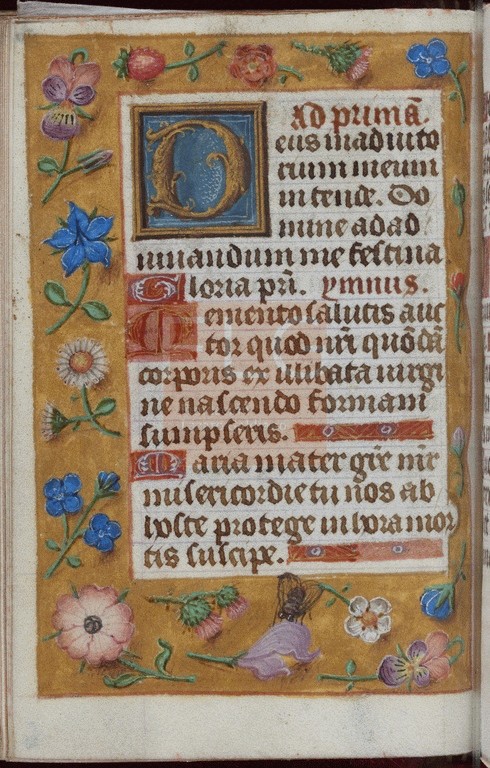 Ad primā.
Deus in adiuto
rium meum
intende. Do
mine ad ad
iuuandum me festina
Gloria pri. ymnus.
Memento salutis auc
tor quod nri quōdā
corporis ex illibata uirgi
ne nascendo formam
sumpseris.
Maria mater grē mr̄
misericordie tu nos ab
hoste protege in hora mor
tis suscipe.